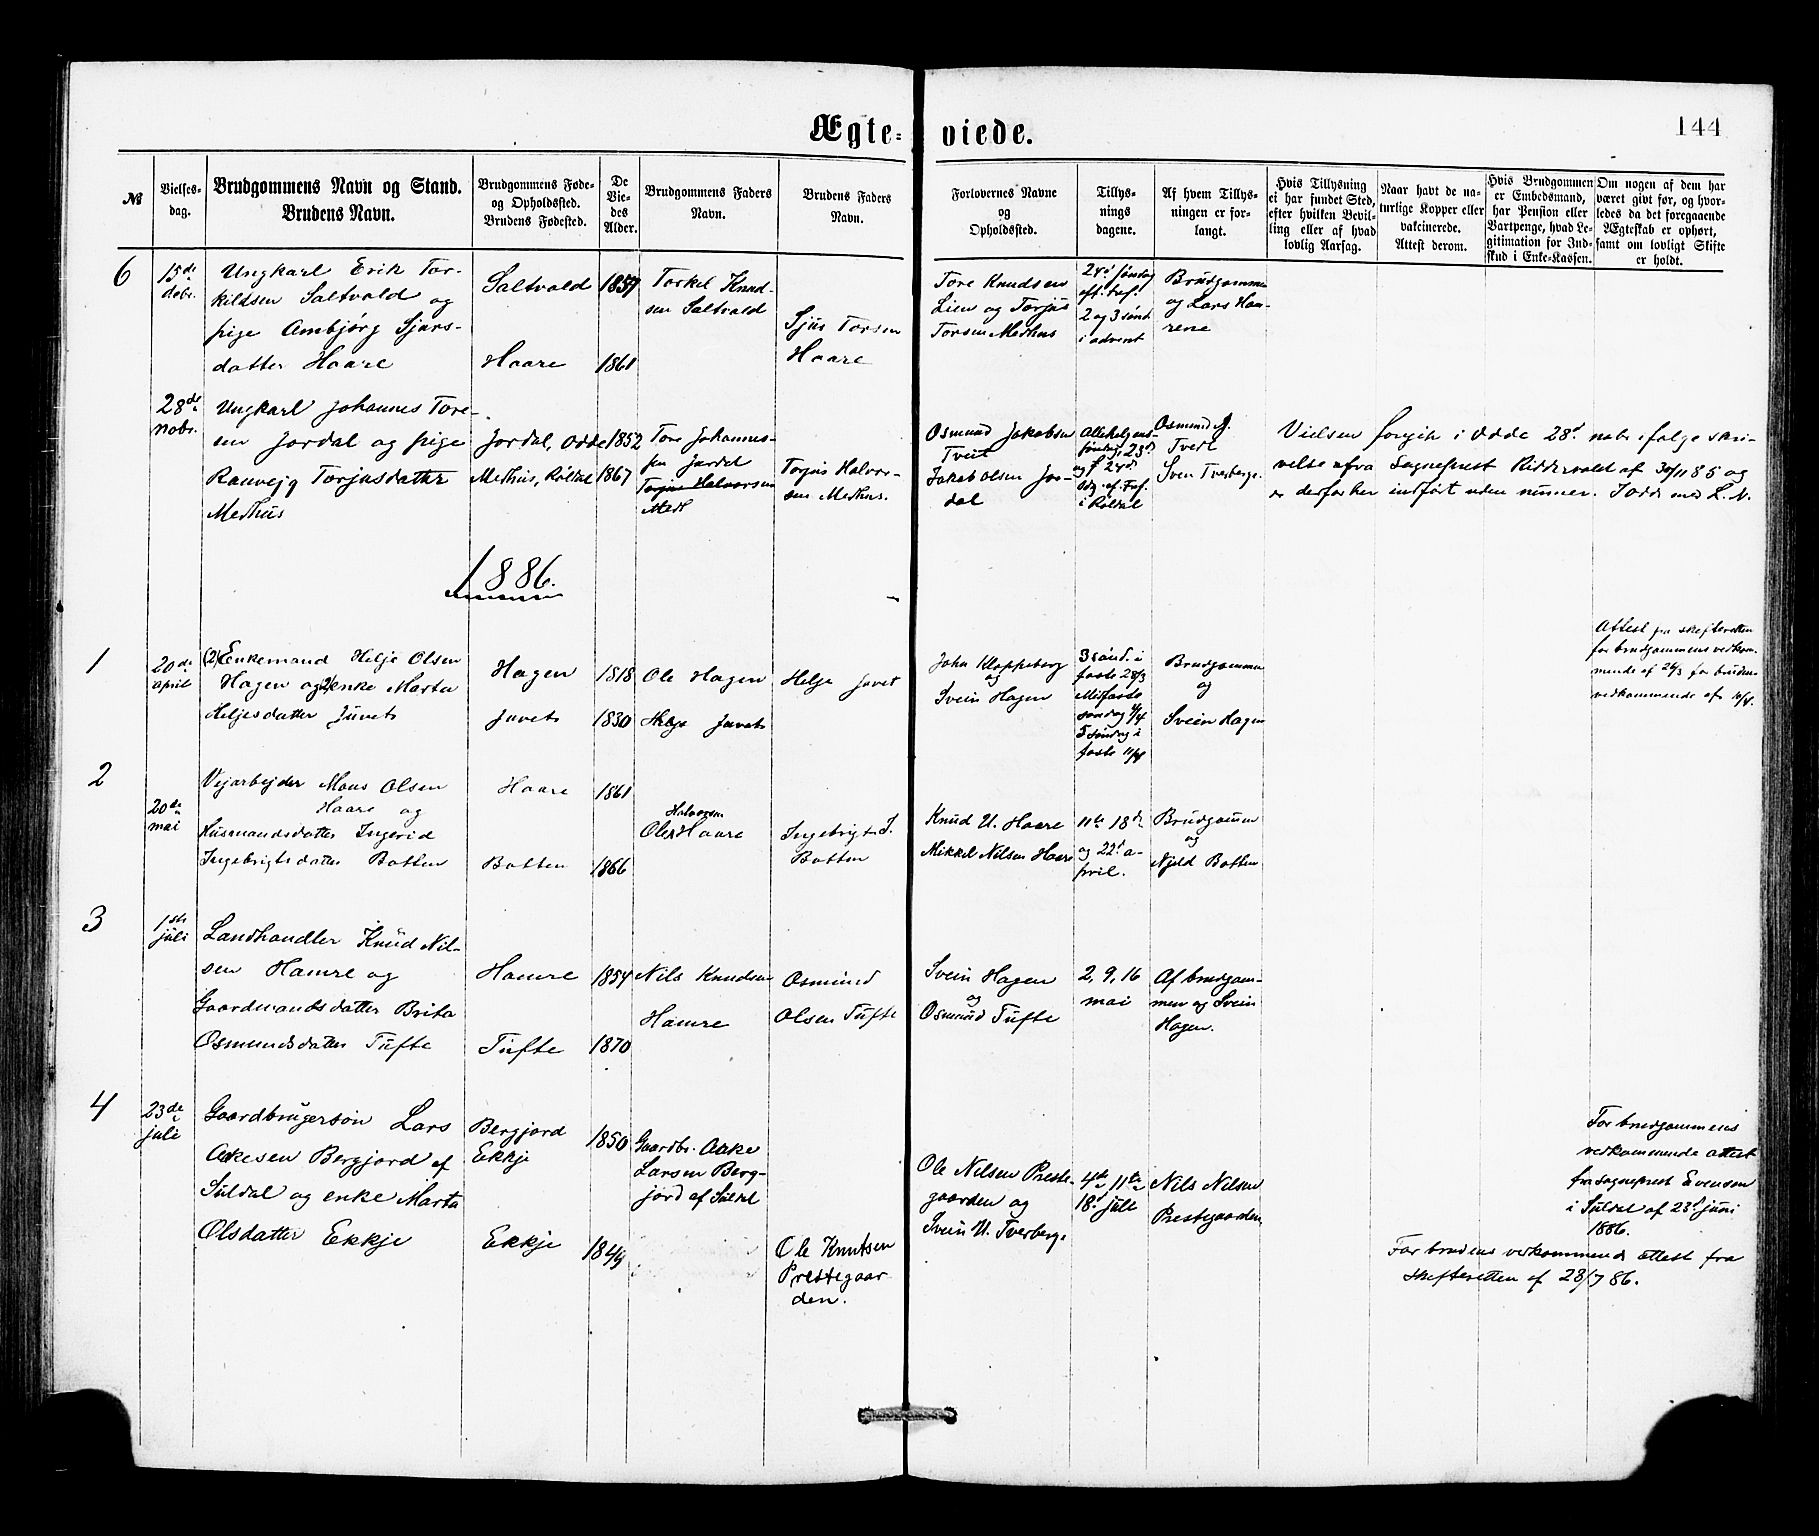 Ægte- viede.
144
№
Vielses-
dag.
Brudgommens Navn og Stand.
Brudens Navn.
Brudgommens Føde-
og Opholdssted.
Brudens Fødested.
De
Vie-
des
Alder.
Brudgommens Faders
Navn.
Brudens Faders
Navn.
Forlovernes Navne
og
Opholdssted.
Tillys-
nings
dagene.
Af hvem Tillys-
ningen er for-
langt.
Hvis Tillysning
ei har fundet Sted,
efter hvilken Bevil-
ling eller af hvad
lovlig Aarsag.
Naar havt de na-
turlige Kopper eller
vakcinerede.
Attest derom.
Hvis Brudgommen
er Embedsmand,
har Pension eller
Vartpenge, hvad Le-
gitimation for Ind-
skud i Enke-Kassen.
Om nogen af dem har
været givt før, og hvor-
ledes da det foregaaende
Ægteskab er ophørt,
samt om lovligt Skifte
er holdt.
6
15de
debr.
Ungkarl Erik Tor-
kildsen Saltvold og
pige Ambjørg Sjurs-
datter Haare
Saltvold
Haare
1857
1861
Torkel Knud-
sen Saltvold
Sjur Torsen
Haare
Tore Knudsen
Lien og Torjus
Torsen Medhus
24d søndag
eft. tref.
2 og 3 sønd
i advent
Brudgommen
og Lars Ham-
rene
28de
nobr.
Ungkarl Johannes Tore-
sen Jordal og pige
Ranveig Torjusdatter
Medhus
Jordal, Odde
Medhus, Røldal
1852
1867
Tore Johannes-
sen Jordal
Torjus Halvorsen
Med
Torjus Halvor-
sen Medhus.
Osmund Jakobsen
Tveit
Jakob Olsen Jor-
dal
Allehelgens-
søndag, 23d
og 24d
sdg. ef. Tref.
i Røldal
Osmund J.
Tvedt
Sven Tverberge.
Vielsen foregik i Odde 28d nobr ifølge skri-
velse fra Sogneprest Riddervold af 30/11 85 og
er derfor her indført uden numer. I Odde med L. N.
1886.
1
20de
april
(2) Enkemand Helje Olsen
Hagen og enke Marta
Heljesdatter Juvet
Hagen
Juvet
1818
1830
Ole Hagen
Helge Juvet
Helje Juvet
John Kloppeborg
og
Svein Hagen
3 sønd. i
faste 28/3
Midfaste
søndag 4/4
5 søndag i
faste 11/4
Brudgommen
og
Svein Hagen
Attest fra skifteretten
for brudgommens vedkom-
mende af 26/3 for brudens
vedkommende af 10/4.
2
20de
mai
Vejarbejder Mons Olsen
Haare og
Husmandsdatter Ingerid
Ingebrigtsdatter Botten
Haare
Botten
1861
1866
Halvorsen
Ole Haare
Ingebrigt J.
Botten
Knud U. Haare
Mikkel Nilsen Haare
11te 18de
og 22d a-
pril.
Brudgommen
og
Njeld Botten
3
1ste
juli
Landhandler Knud Nil-
sen Hamre og
Gaardmandsdatter Brita
Osmundsdatter Tufte
Hamre
Tufte
1854
1870
Nils Knudsen
Hamre
Osmund
Olsen Tufte
Svein Hagen
og
Osmund Tufte
2, 9, 16
mai
Af brudgom-
men og Svein
Hagen.
4
23de
juli
Gaardbrugersøn Lars
Akesen Bergjord af
Suldal og enke Marta
Olsdatter Ekkje
Bergjord
Ekkje
Ekkje
1850
1844
Gaardbr. Aake
Larsen Berg-
jord af Suldal
Ole Knutsen
Prestegaar
den.
Ole Nilsen Preste-
gaarden og
Svein U. Tverberge
4de, 11te
18d juli
Nils Nilsen
Prestegaarden
For brudgommens
vedkommende attest
fra Sogneprest Evensen
i Suldal af 23d juni
1886.
For brudens vedkommende attest fra
skifteretten af 23/7 86.